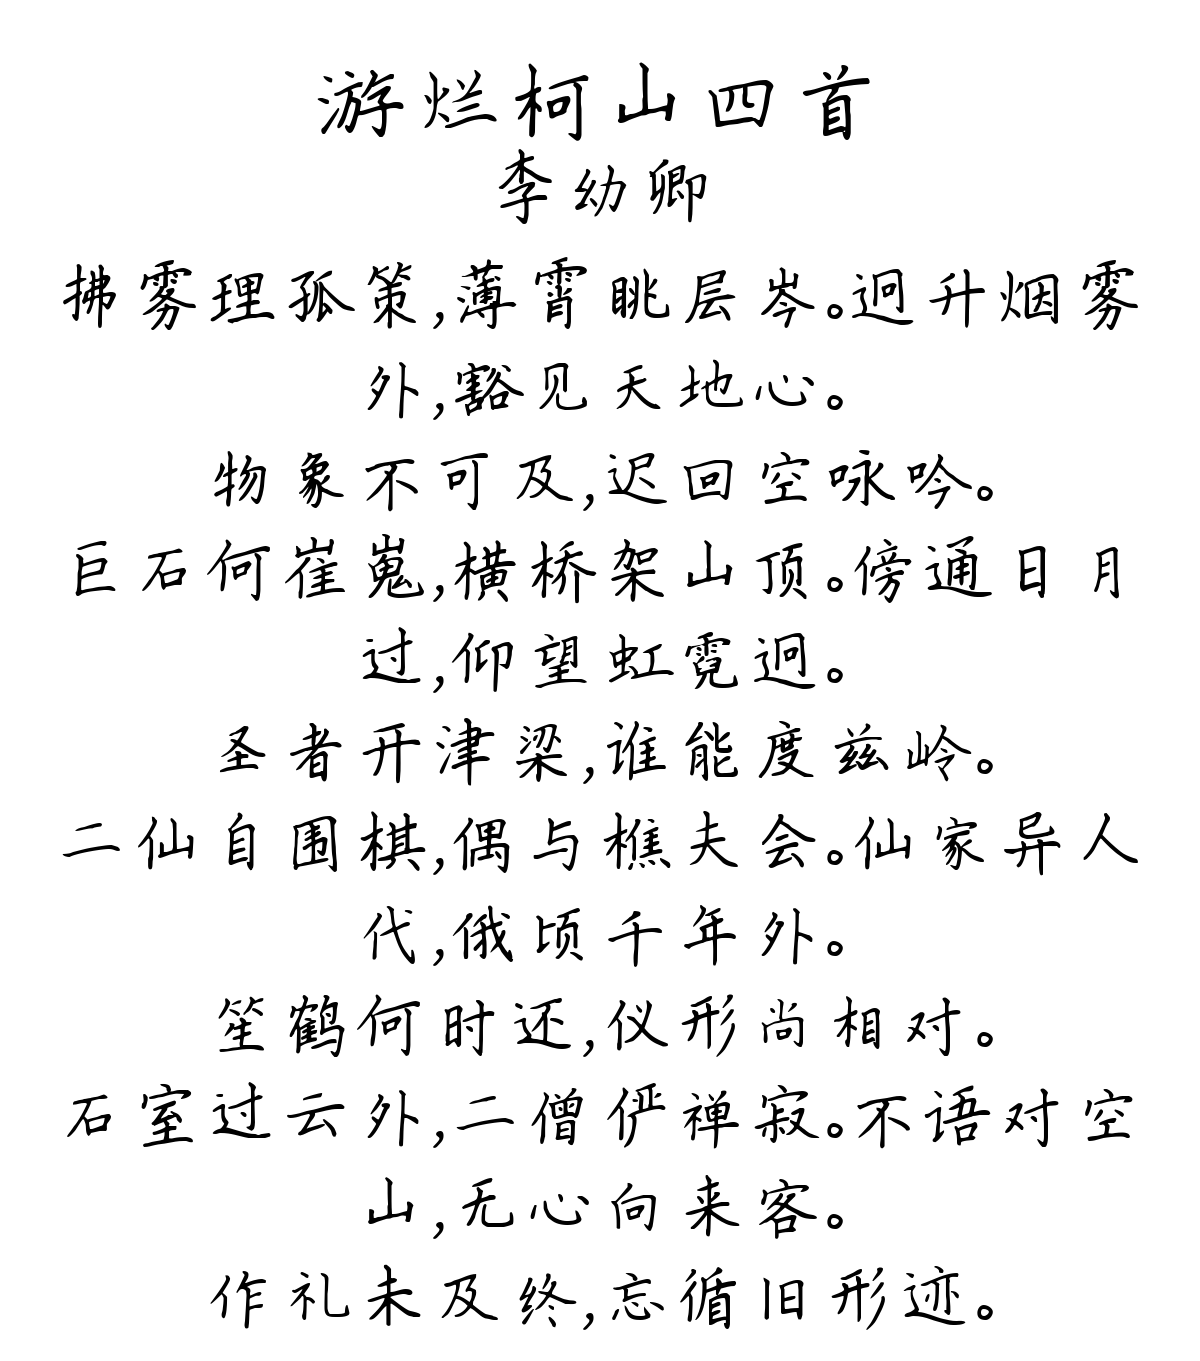 游烂柯山四首
李幼卿
拂雾理孤策,薄霄眺层岑。迥升烟雾
外,豁见天地心。
物象不可及,迟回空咏吟。
巨石何崔嵬,横桥架山顶。傍通日月
过,仰望虹霓迥。
圣者开津梁,谁能度兹岭。
二仙自围棋,偶与樵夫会。仙家异人
代,俄顷千年外。
笙鹤何时还,仪形尚相对。
石室过云外,二僧俨禅寂。不语对空
山,无心向来客。
作礼未及终,忘循旧形迹。